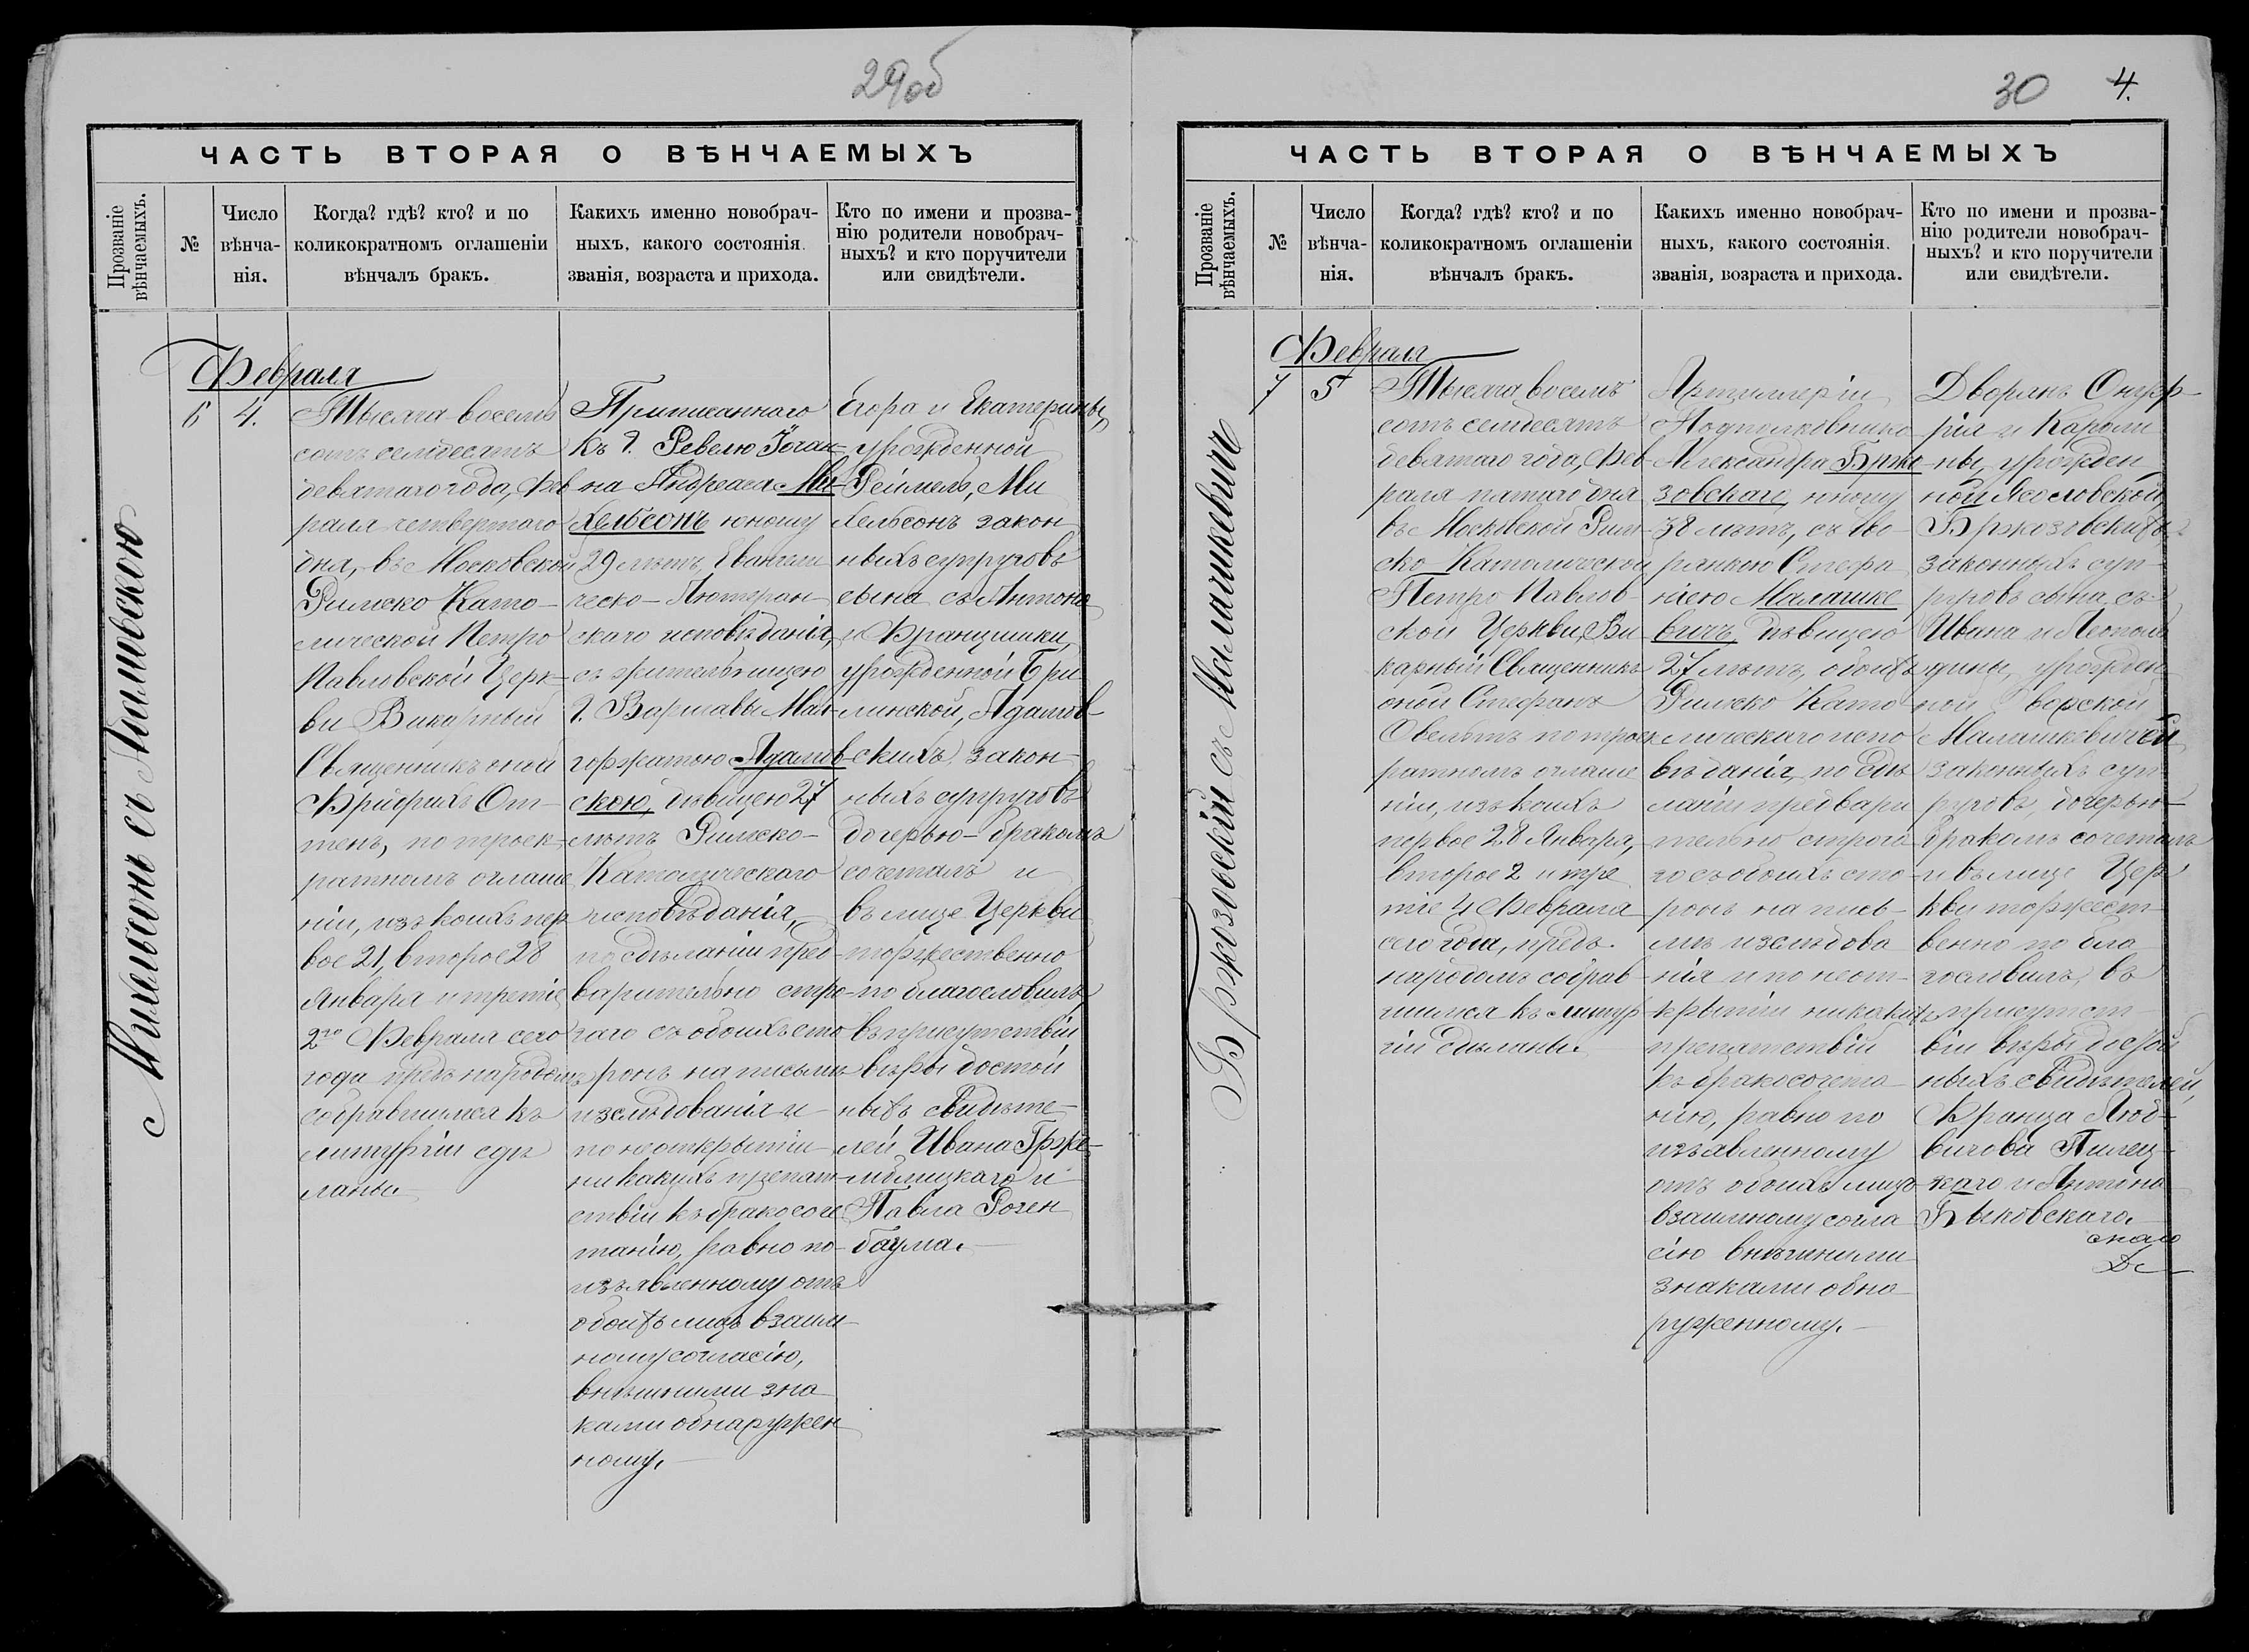 29об
ЧАСТЬ ВТОРАЯ О ВѢНЧАЕМЫХЪ
Прозваніе
вѣнчаемыхъ.
№
Число
вѣнча-
нія.
Когда? гдѣ? кто? и по
коликократномъ оглашеніи
вѣнчалъ бракъ.
Какихъ именно новобрач-
ныхъ, какого состоянія.
званія, возраста и прихода.
Кто по имени и прозва-
нію родители новобрач-
ныхъ? и кто поручители
или свидѣтели.
Михельсонъ съ Адамовскою
Февраля
6
4.
Тысяча восемь
сотъ семьдесятъ
девятаго года, Фев
раля четвертаго
дня, въ Московской
Римско Като-
лической Петро
Павловской Церк-
ви Викарный
Священникъ оной
Фридрихъ От-
тенъ, по троек-
ратномъ оглаше
ніи, изъ коихъ пер
вое 21, второе 28
Января и третіе
2го Февраля сего
года предъ народомъ
собравшимся къ
литургіи сдѣ
ланы.
Приписаннаго
къ г. Ревелю Іоган-
на Андреаса Ми-
хельсонъ юношу
29 лѣтъ, Евангели
ческо-Лютеран
скаго исповѣданія,
съ жительницею
г. Варшавы Мал-
горжатою Адамов
скою, дѣвицею 27
лѣтъ Римско-
Католическаго
исповѣданія,
по сдѣланіи пред-
варительно стро-
гаго съ обоихъ сто
ронъ на письмѣ
изслѣдованія и
по неоткрытіи
никакихъ препят-
ствій къ бракосоче
танію, равно по-
изъявленному отъ
обоихъ лицъ взаим-
ному согласію,
внѣшними зна
ками обнаружен
ному.
Егора и Екатерины,
урожденной
Реймель, Ми
хельсонъ закон
ныхъ супруговъ
сына съ Антона
и Францишки,
урожденной Бри
линской, Адамов
скихъ, закон
ныхъ супруговъ
дочерью-бракомъ
сочеталъ и
въ лице Церкви
торжественно
по благословилъ,
въ присутствіи
вѣры достой
ныхъ свидѣте-
лей Ивана Грже-
малицкаго и
Павла Розен
баума.
30
4.
ЧАСТЬ ВТОРАЯ О ВѢНЧАЕМЫХЪ
Прозваніе
вѣнчаемыхъ.
№
Число
вѣнча-
нія.
Когда? гдѣ? кто? и по
коликократномъ оглашеніи
вѣнчалъ бракъ.
Какихъ именно новобрач-
ныхъ, какого состоянія.
званія, возраста и прихода.
Кто по имени и прозва-
нію родители новобрач-
ныхъ? и кто поручители
или свидѣтели.
Бржозовскій съ Малашкевичъ
Февраля
7
5
Тысяча восемь
сотъ семьдесятъ
девятаго года, Фев
раля пятаго дня
въ Московской Рим
ско Католической
Петро Павлов-
ской Церкви, Ви
карный Священникъ
оной Стефанъ
Овельтъ по троек
ратномъ оглаше
ніи, изъ коихъ
первое 28 Января,
второе 2 и тре
тіе 4 Февраля
сего года, предъ
народомъ собрав
шимся къ литур
гіи сдѣланы.
Артиллеріи
Подполковника
Александра Бржо
зовскаго, юношу
38 лѣтъ, съ дво
рянкою Стефа
ніею Малашке
вичъ, дѣвицею
27 лѣтъ, обоихъ
Римско Като
лическаго испо
вѣданія, по сдѣ
ланіи предвари
тельно строга
го съ обоихъ сто
ронъ на пись-
мѣ изслѣдова
нія и по неот-
крытіи никакихъ
препятствій
къ бракосочета
нію, равно по
изъявленному
отъ обоихъ лицъ
взаимному согла
сію внѣшними
знаками обна
руженному.
Дворянъ Онуф
рія и Кароли
ны, урожден
ной
Бржозовскихъ,
законныхъ суп-
руговъ сына, съ
Ивана и Леополь
дины, урожден
ной
Малашкевичей
законныхъ суп
руговъ, дочерью-
бракомъ сочеталъ
и въ лице Цер
кви торжест-
венно по бла
гословилъ, въ
присутст-
віи вѣры достой
ныхъ свидѣтелей,
Франца Люд-
вигова Пилец-
каго и Антона
Быковскаго.